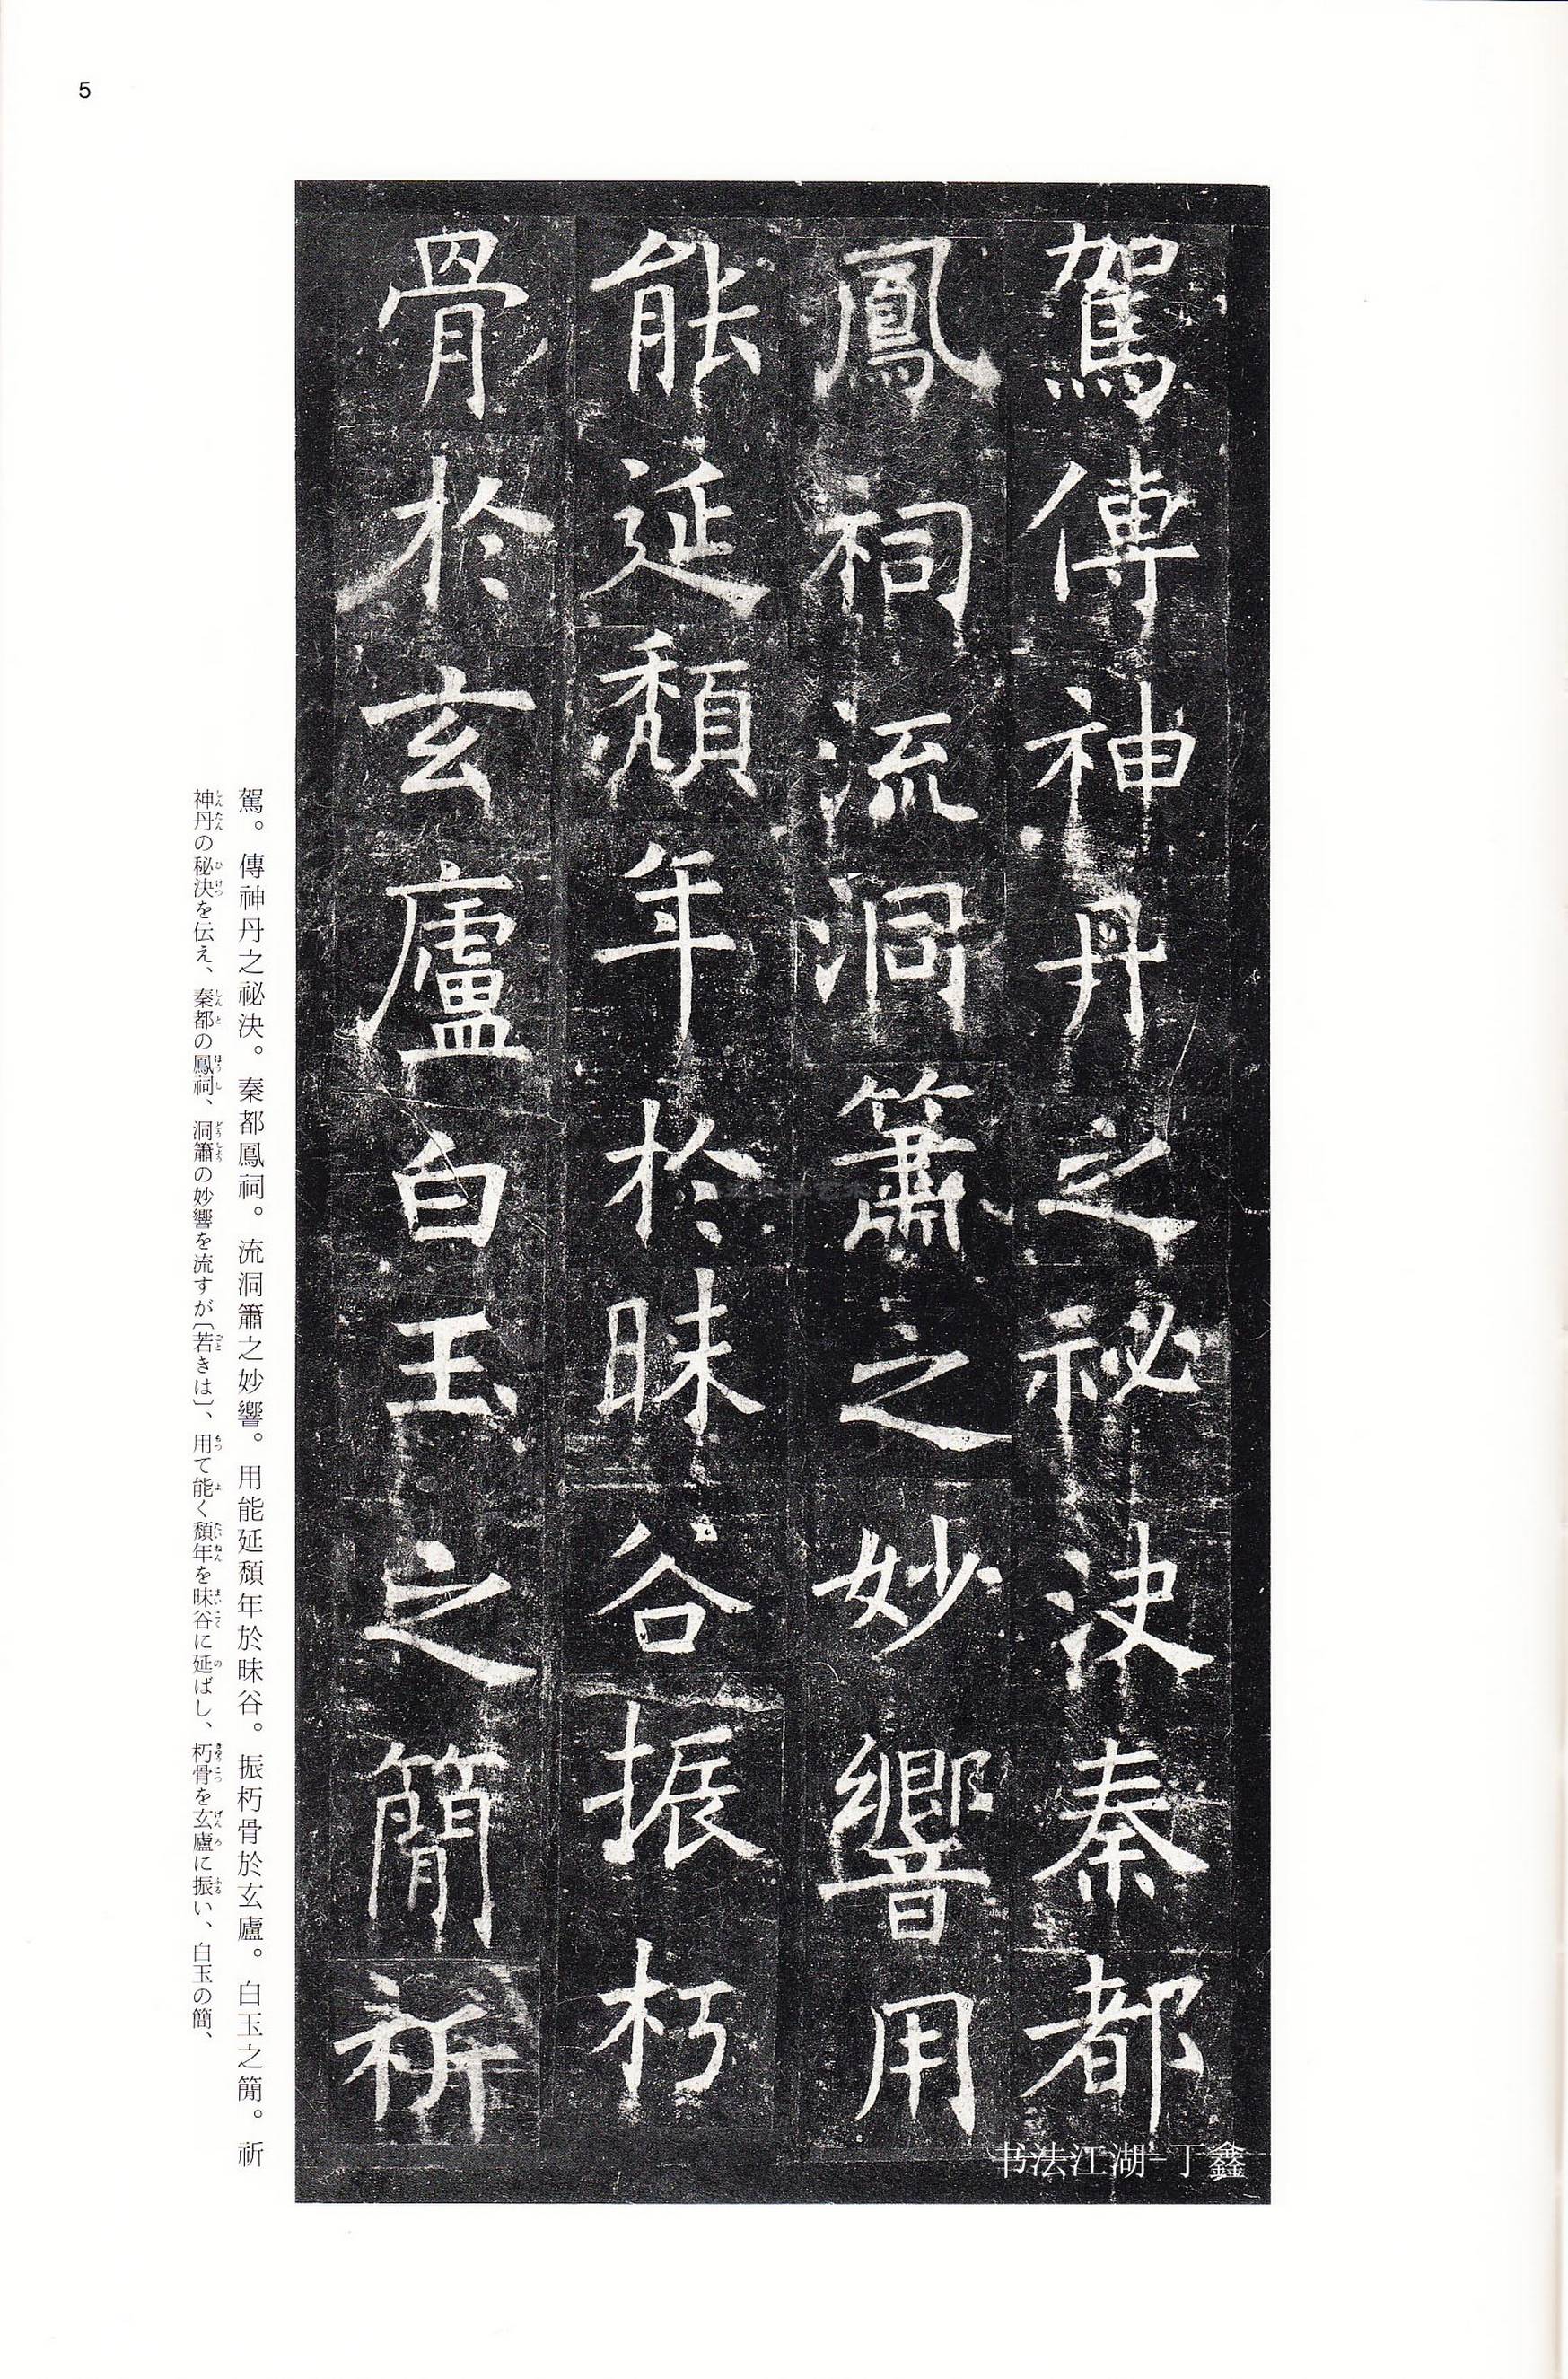 5
駕傳神丹之祕決秦都
鳳祠流洞簫之妙響用
能延頽年於昧谷振朽
骨於玄廬白玉之簡祈
书法江湖-丁鑫
駕。傳神丹之祕決。秦都鳳祠。流洞簫之妙響。用能延頽年於昧谷。振朽骨於玄廬。白玉之簡。祈
神丹の秘決を伝え、秦都の鳳祠、洞簫の妙響を流すが〔若きは〕、用て能く頽年を昧谷に延ばし、朽骨を玄廬に振い、白玉の簡、